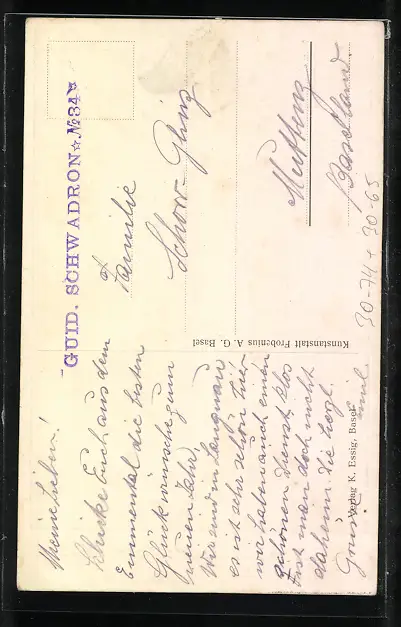 Meine Lieben!
Schicke Euch aus dem
Emmental die besten
Glückwünsche zum
neuen Jahr.
Wir sind in Langnau
es ist sehr schön hier
wir haben auch einen
schönen Dienst, blos
ist man doch nicht
daheim. Die herzl.
Grüsse Emil.
GUID. SCHWADRON ☆ No. 34
Familie
Schorr-Glinz
Muttenz
Baselland
Kunstanstalt Frobenius A. G. Basel
Verlag K. Essig, Basel
30-74 + 30-65